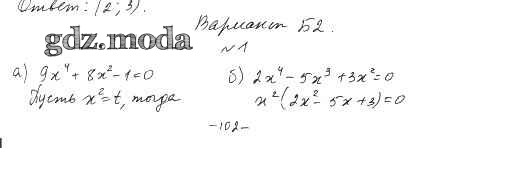 Ответ: (2; 3).
Вариант Б2.
gdz.moda
№1
а) 9x⁴ + 8x² - 1 = 0
Пусть x² = t, тогда
б) 2x⁴ - 5x³ + 3x² = 0
x²(2x² - 5x + 3) = 0
-102-